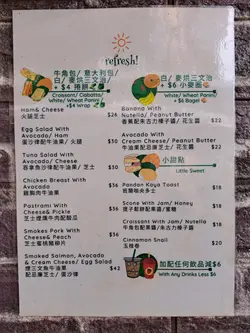 refresh!
牛角包/ 意大利包/
白/ 麥烘三文治
+ $4 捲餅
Croissant/ Ciabatta/
White/ Wheat Panini
+$4 Wrap
Ham& Cheese $26
火腿芝士
Egg Salad With
Avocado/ Ham $34
蛋沙律配牛油果/ 火腿
Tuna Salad With
Avocado/ Cheese $30
吞拿魚沙律配牛油果/ 芝士
Chicken Breast With
Avocado $36
雞胸肉牛油果
Pastrami With
Cheese& Pickle $36
芝士煙燻牛肉酸瓜
Smokes Pork With
Cheese& Peach $36
芝士蜜桃豬腿片
Smoked Salmon, Avocado
& Cream Cheese/ Egg Salad $42
煙三文魚牛油果
配忌廉芝士/ 蛋沙律
白/ 麥烘三文治
+ $6 小麥圈
White/ Wheat Panini/
+ $6 Bagel
Banana With
Nutella/ Peanut Butter
香蕉配朱古力榛子醬/ 花生醬 $22
Avocado With
Cream Cheese/ Peanut Butter
牛油果配忌廉芝士/ 花生醬 $22
小甜點
Little Sweet
Pandan Kaya Toast $18
班蘭咖央多士
Scone With Jam/ Honey $18
提子鬆餅配果醬/蜜糖
Croissant With Jam/ Nutella $18
牛角包配果醬/ 朱古力榛子醬
Cinnamon Snail $20
玉桂卷
加配任何飲品減$6
With Any Drinks Less $6